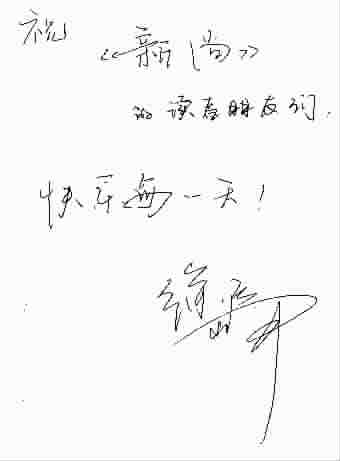 祝
《新尚》
的读者朋友们,
快乐每一天!